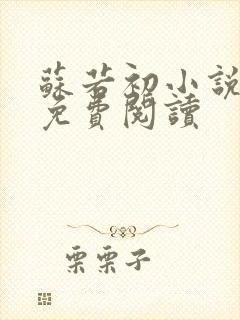 蘇若初小說
免費閱讀
栗栗子